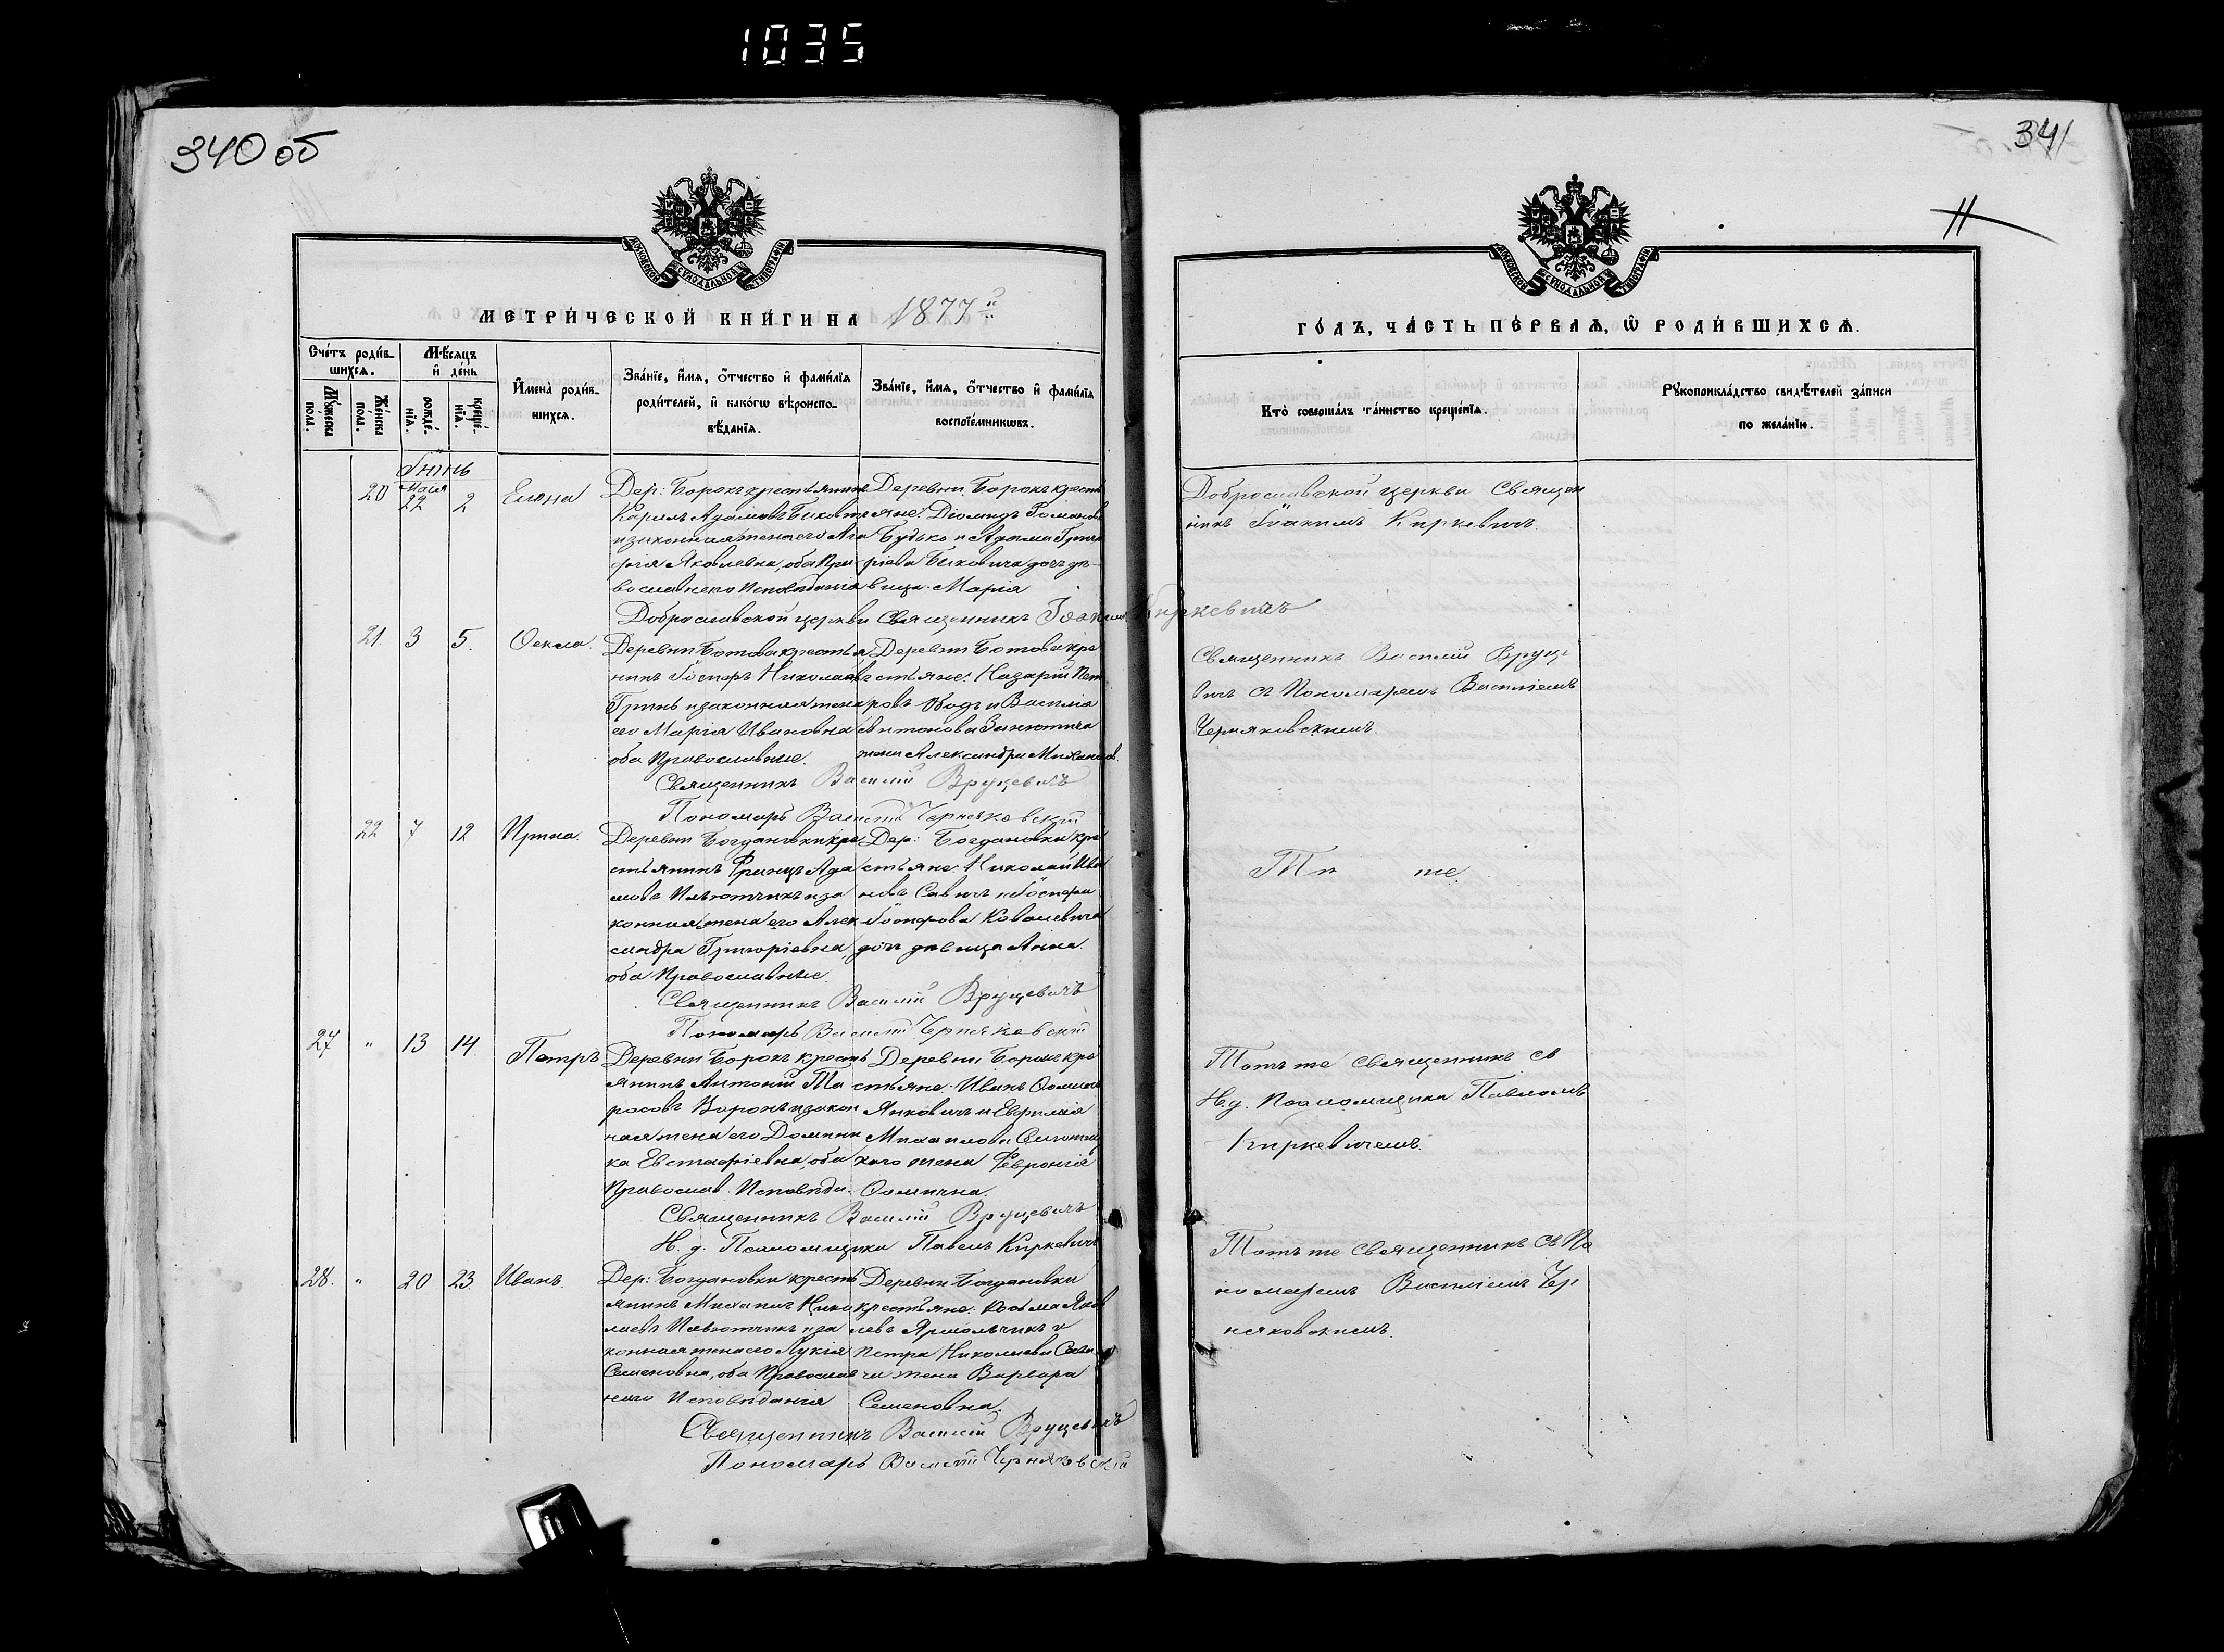 1035
340 об
341
11
МОСКОВСКОЙ СѴНОДАЛЬНОЙ ТИПОГРАФІИ
МОСКОВСКОЙ СѴНОДАЛЬНОЙ ТИПОГРАФІИ
МЕТРИ́ЧЕСКОЙ КНИ́ГИ НА 1877й
ГО́ДЪ, ЧА́СТЬ ПЕ́РВАѦ, Ѿ РОДИ́ВШИХСѦ.
Сче́тъ роди́в-
шихсѧ.
Мꙋ́жеска
по́ла.
Же́нска
по́ла.
Мѣ́сѧцъ
и҆ де́нь
рожде́-
нїѧ.
креще́-
нїѧ.
И҆мена̀ роди́в-
шихсѧ.
Зва́нїе, и҆́мѧ, ѻ҆́тчество и҆ фами́лїѧ
роди́телей, и҆ како́гѡ вѣроиспо-
вѣ́данїѧ.
Зва́нїе, и҆́мѧ, ѻ҆́тчество и҆ фами́лїѧ
воспрїе́мникѡвъ.
Кто̀ соверша́лъ та́инство креще́нїѧ.
Рꙋкоприкла́дство свидѣ́телей за́писи
по жела́нїи.
Іюнь
20 Мая 22 2 Елена
Дер: Борокъ крестьянинъ
Карпъ Адамовъ Бикович
и законная жена его Ага
фія Яковлевна, оба Пра-
вославнаго Исповѣданія
Деревни Борокъ кресть
яне: Діомидъ Романовъ
Будько и Адама Григо
ріева Биковича дочь дѣ-
вица Марія
Доброславской церкви Священ
никъ Іоакимъ Киркевичъ.
Доброславской церкви Священникъ Іоакимъ Киркевичъ
21. 3 5. Ѳекла.
Деревни Ботова крестья
нинъ Іосифъ Николаевъ
Гринь и законная жена
его Марія Ивановна
оба Православные.
Деревни Ботова кре
стьяне: Назарій Пет
ровъ и Василія
Антонова
жена Александра
Священникъ Василій Вруце
вичъ съ Пономаремъ Василіемъ
Черняковскимъ.
Священникъ Василій Вруцевичъ
Пономарь Василій Черняковскій
22 7 12 Ирина.
Деревни Богдановки кре
стьянинъ Францъ Ада
мовъ Ильютчикъ и за
конная жена его Алек
сандра Григоріевна,
оба Православные
Дер: Богдановки кре
стьяне: Николай Ива
новъ Савичъ и Іосифа
Іосифова Ковалевича
дочь дѣвица Анна.
Ти же.
Священникъ Василій Вруцевичъ
Пономарь Василій Черняковскій
27 " 13 14. Петръ
Деревни Борокъ кресть
янинъ Антоній Та
расовъ Воронъ и закон
ная жена его Домини
ка Евстафіевна, оба
Православ. Исповѣда.
Деревни Борокъ кре
стьяне: Иванъ Ѳоминъ
Янковичъ и Евфимія
Михаилова
жена Февронія
Ѳомична.
Тотъ же священникъ съ
И.д. Псаломщика Павломъ
Киркевичемъ.
Священникъ Василій Вруцевичъ
И. д. Псаломщика Павелъ Киркевичъ
28. " 20 23. Иванъ.
Дер: Богдановки кресть
янинъ Михаилъ Нико
лаевъ Ильютчикъ и за
конная жена его Лукія
Семеновна, оба Православ
наго Исповѣданія
Деревни Богдановки
крестьяне: Косьма Яков
левъ Ярмольчикъ и
Петра Николаева Сави
ча жена Варвара
Семеновна.
Тотъ же Священникъ съ По
номаремъ Василіемъ Чер
няковскимъ.
Священникъ Василій Вруцевичъ
Пономарь Василій Черняковскій